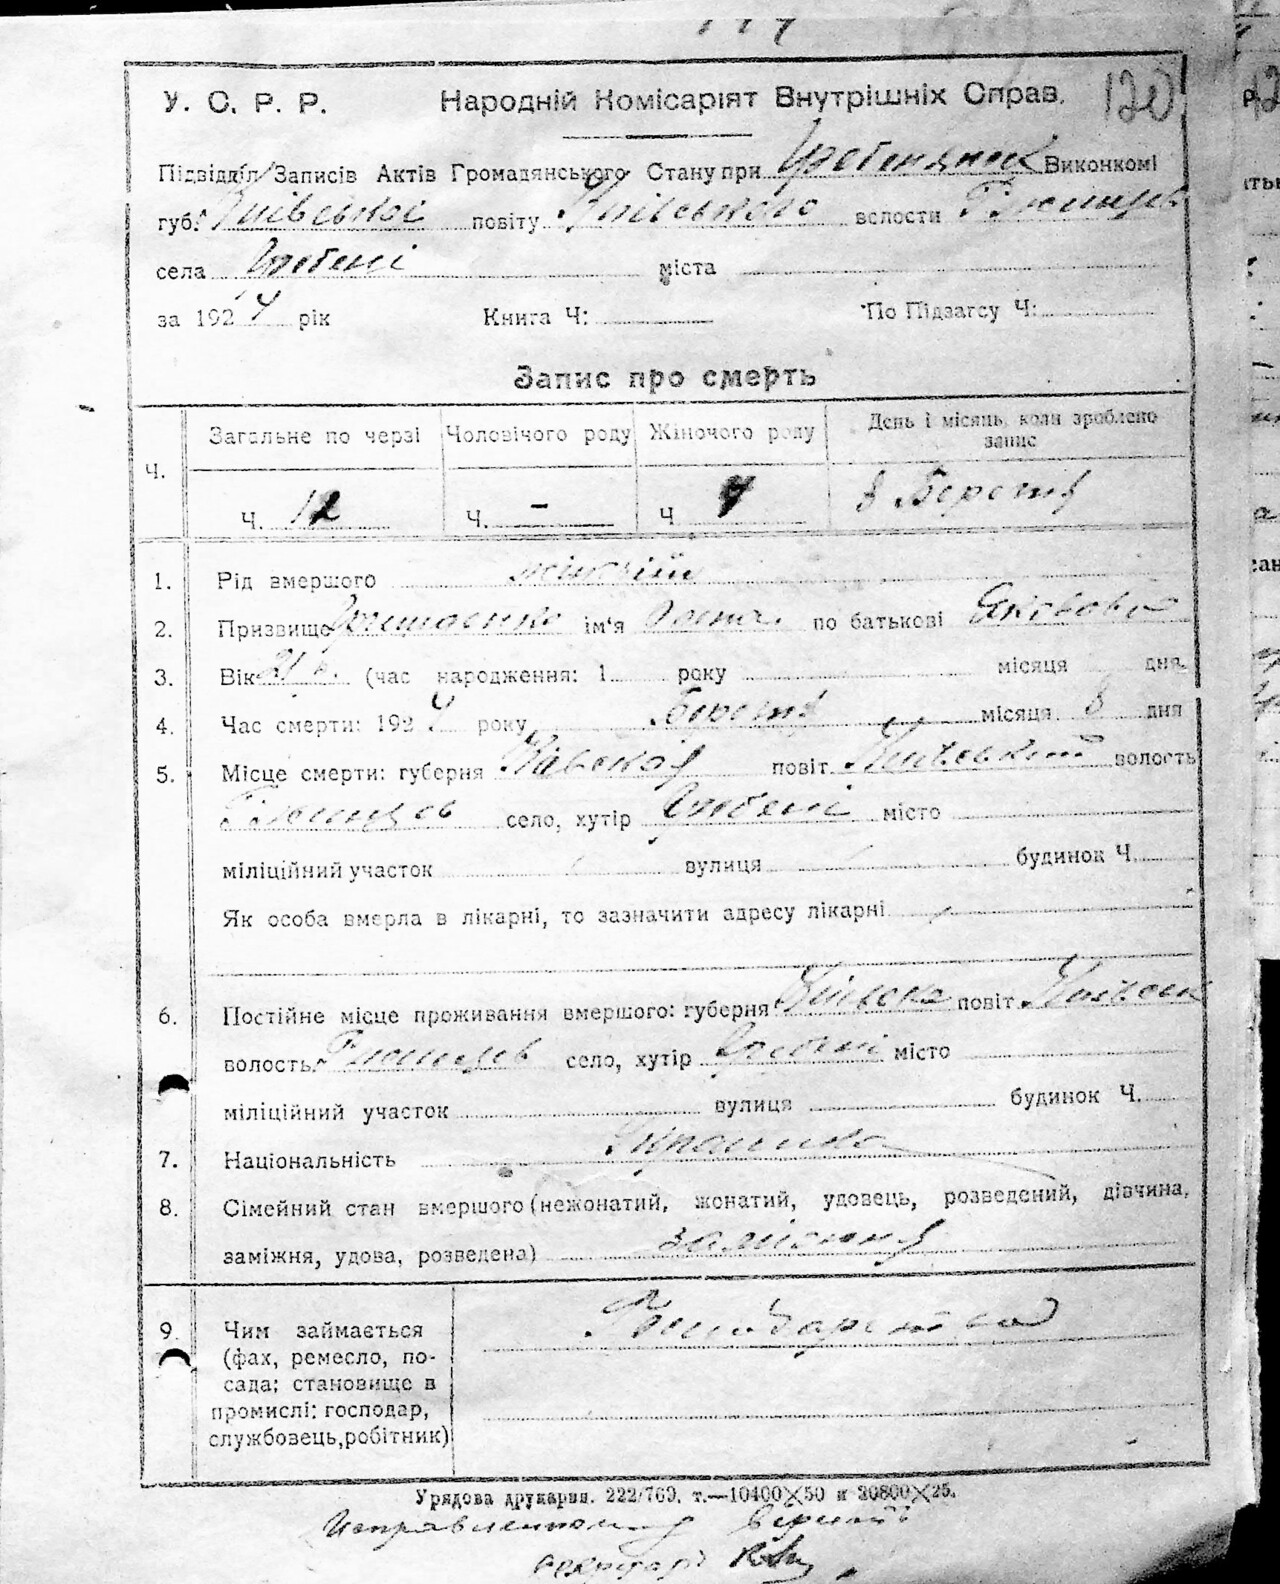 120
У. С. Р. Р. Народній Комісаріят Внутрішніх Справ.
Підвідділ Записів Актів Громадянського Стану при Гребенячк Виконкомі
губ. Київської повіту Київського волости
села Гребені міста
за 1924 рік Книга Ч: По Підзагсу Ч:
Запис про смерть
Загальне по черзі Чоловічого роду Жіночого роду День і місяць, коли зроблено запис
Ч. Ч. 12 Ч. – Ч 7 8 Березня
1. Рід вмершого жіночій
2. Призвище ім'я по батькові Якововна
3. Вік 21 р. (час народження: 1 року місяця дня
4. Час смерти: 1924 року Березня місяця 8 дня
5. Місце смерти: губерня Київская повіт Київський волость
село, хутір Гребені місто
міліційний участок вулиця будинок Ч.
Як особа вмерла в лікарні, то зазначити адресу лікарні
6. Постійне місце проживання вмершого: губерня Київска повіт Київськ
волость село, хутір Гребені місто
міліційний участок вулиця будинок Ч.
7. Національність Украинка
8. Сімейний стан вмершого (нежонатий, жонатий, удовець, розведений, дівчина,
заміжня, удова, розведена) заміжня
9. Чим займається Господарства
(фах, ремесло, по-
сада; становище в
промислі: господар,
службовець, робітник)
Урядова друкарня. 222/769. т.—10400×50 и 20800×25.
верить
секретарь